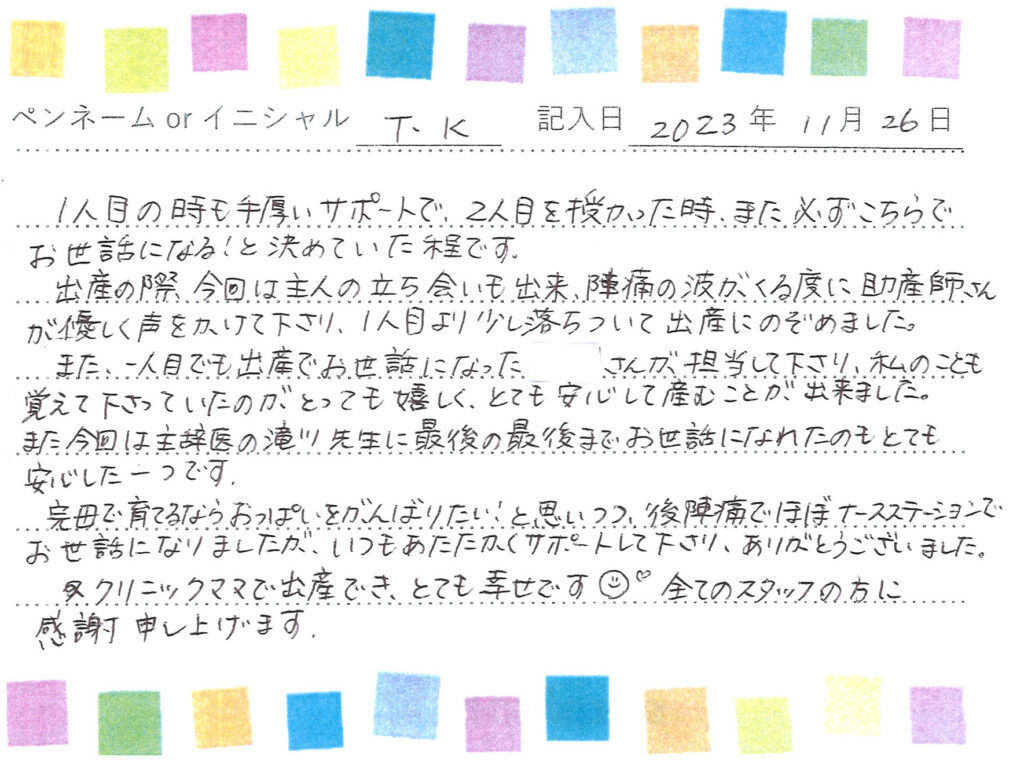 ペンネーム or イニシャル T.K 記入日 2023年 11月 26日
1人目の時も手厚いサポートで、2人目を授かった時、また必ずこちらで
お世話になる!と決めていた程です。
出産の際、今回は主人の立ち会いも出来、陣痛の波がくる度に助産師さん
が優しく声をかけて下さり、1人目より少し落ちついて出産にのぞめました。
また、一人目でも出産でお世話になった さんが担当して下さり、私のことも
覚えて下さっていたのがとっても嬉しく、とても安心して産むことが出来ました。
また今回は主辞医の滝川先生に最後の最後までお世話になれたのもとても
安心した一つです。
完母で育てるならおっぱいをがんばりたい!と思いつつ、後陣痛でほぼナースステーションで
お世話になりましたが、いつもあたたかくサポートして下さり、ありがとうございました。
クリニックママで出産でき、とても幸せです 全てのスタッフの方に
感謝申し上げます。